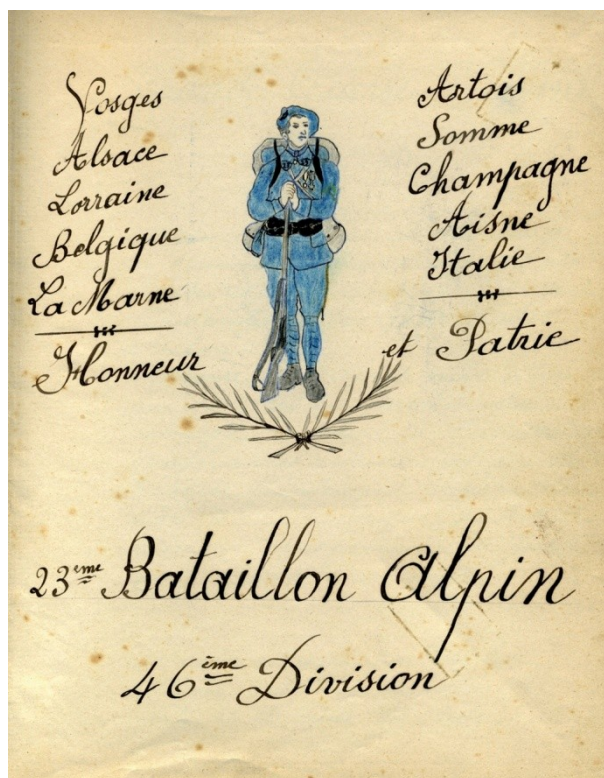 Vosges
Alsace
Lorraine
Belgique
La Marne
Honneur
Artois
Somme
Champagne
Aisne
Italie
et Patrie
23ème Bataillon Alpin
46ème Division